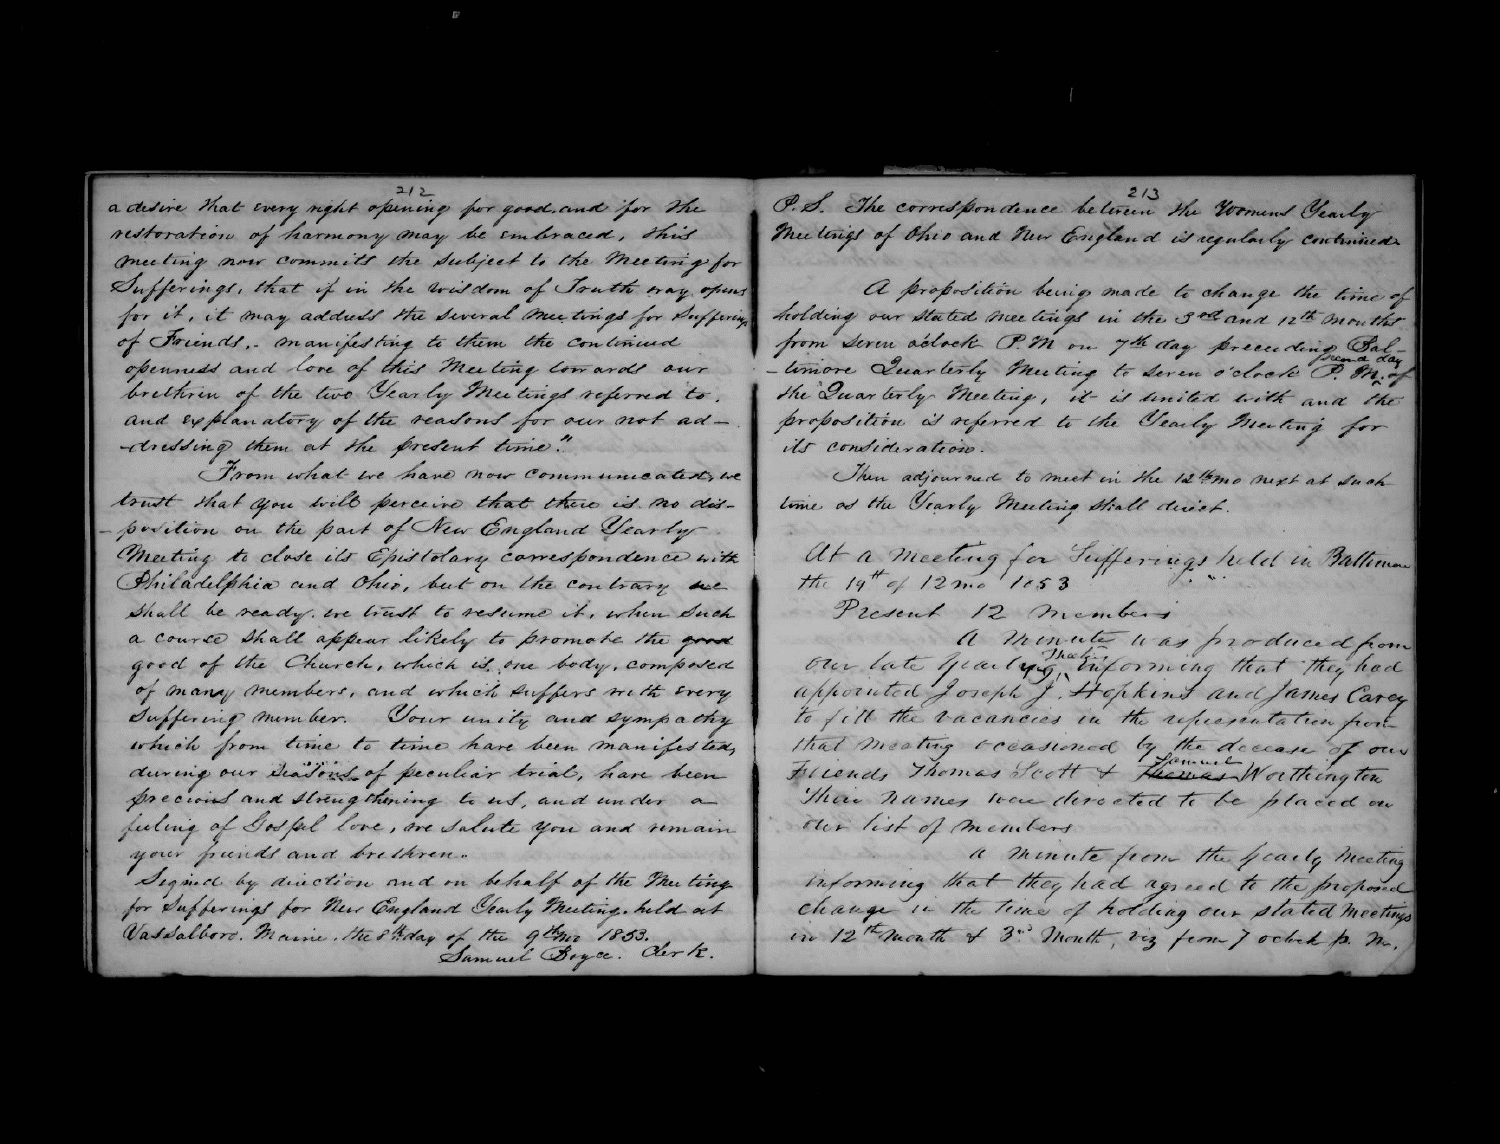 212
a desire that every right opening for good, and for the
restoration of harmony may be embraced, this
meeting now commits the subject to the Meeting for
Sufferings, that if in the wisdom of Truth way opens
for it, it may address the several meetings for Sufferings
of Friends, - manifesting to them the continued
openness and love of this Meeting towards our
brethren of the two Yearly Meetings referred to,
and explanatory of the reasons for our not ad-
-dressing them at the present time."
From what we have now communicated, we
trust that you will perceive that there is no dis-
-position on the part of New England Yearly
Meeting to close its Epistolary correspondence with
Philadelphia and Ohio, but on the contrary we
shall be ready, we trust to resume it, when such
a course shall appear likely to promote the good
good of the Church, which is one body, composed
of many members, and which suffers with every
suffering member. Your unity and sympathy
which from time to time have been manifested,
during our seasons of peculiar trial, have been
precious and strengthening to us, and under a
feeling of Gospel love, we salute you and remain
your friends and brethren.
Signed by direction and on behalf of the Meeting
for Sufferings for New England Yearly Meeting, held at
Vassalboro, Maine, the 8th day of the 9th mo 1853.
Samuel Boyce. Clerk.
213
P.S. The correspondence between the Womens Yearly
Meetings of Ohio and New England is regularly continued.
A proposition being made to change the time of
holding our stated meetings in the 3rd and 12th months
from seven oclock P.M on 7th day preceeding Bal-
-timore Quarterly Meeting to seven o'clock P. M. second day of
the Quarterly Meeting, it is united with and the
proposition is referred to the Yearly Meeting for
its consideration.
Then adjourned to meet in the 12th mo next at such
time as the Yearly Meeting shall direct.
At a meeting for Sufferings held in Baltimore
the 19th of 12 mo 1853
Present 12 members
A minute was produced from
our late Yearly Meeting, informing that they had
appointed Joseph J. Hopkins and James Carey
to fill the vacancies in the representation from
that meeting occasioned by the decease of our
Friends Thomas Scott & Thomas Samuel Worthington
Their names were directed to be placed on
our list of members
A minute from the Yearly Meeting
informing that they had agreed to the proposed
change in the time of holding our stated Meetings
in 12th month & 3rd Month, viz from 7 oclock p. m.